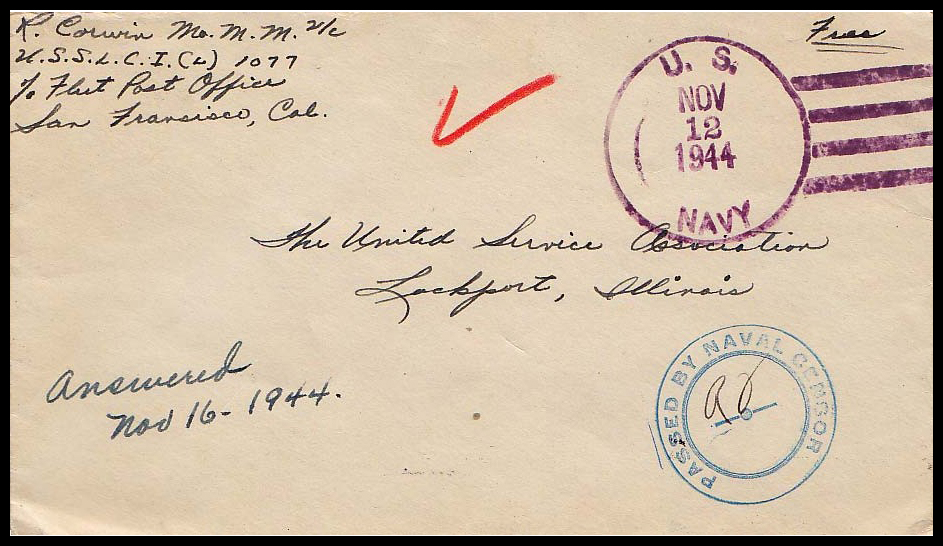 R. Corwin Mo. M. M. 2/c
U.S.S. L.C.I. (L) 1077
℅ Fleet Post Office
San Fransisco, Cal.
Free
U. S.
NOV
12
1944
NAVY
The United Service Association
Lockport, Illinois
Answered
Nov 16 - 1944.
PASSED BY NAVAL CENSOR